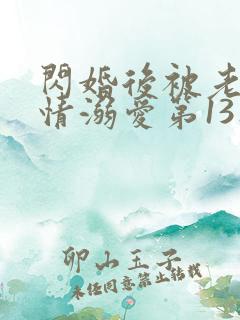 閃婚後被老
情溺愛第13
卯山玉子
未經同意禁止轉載